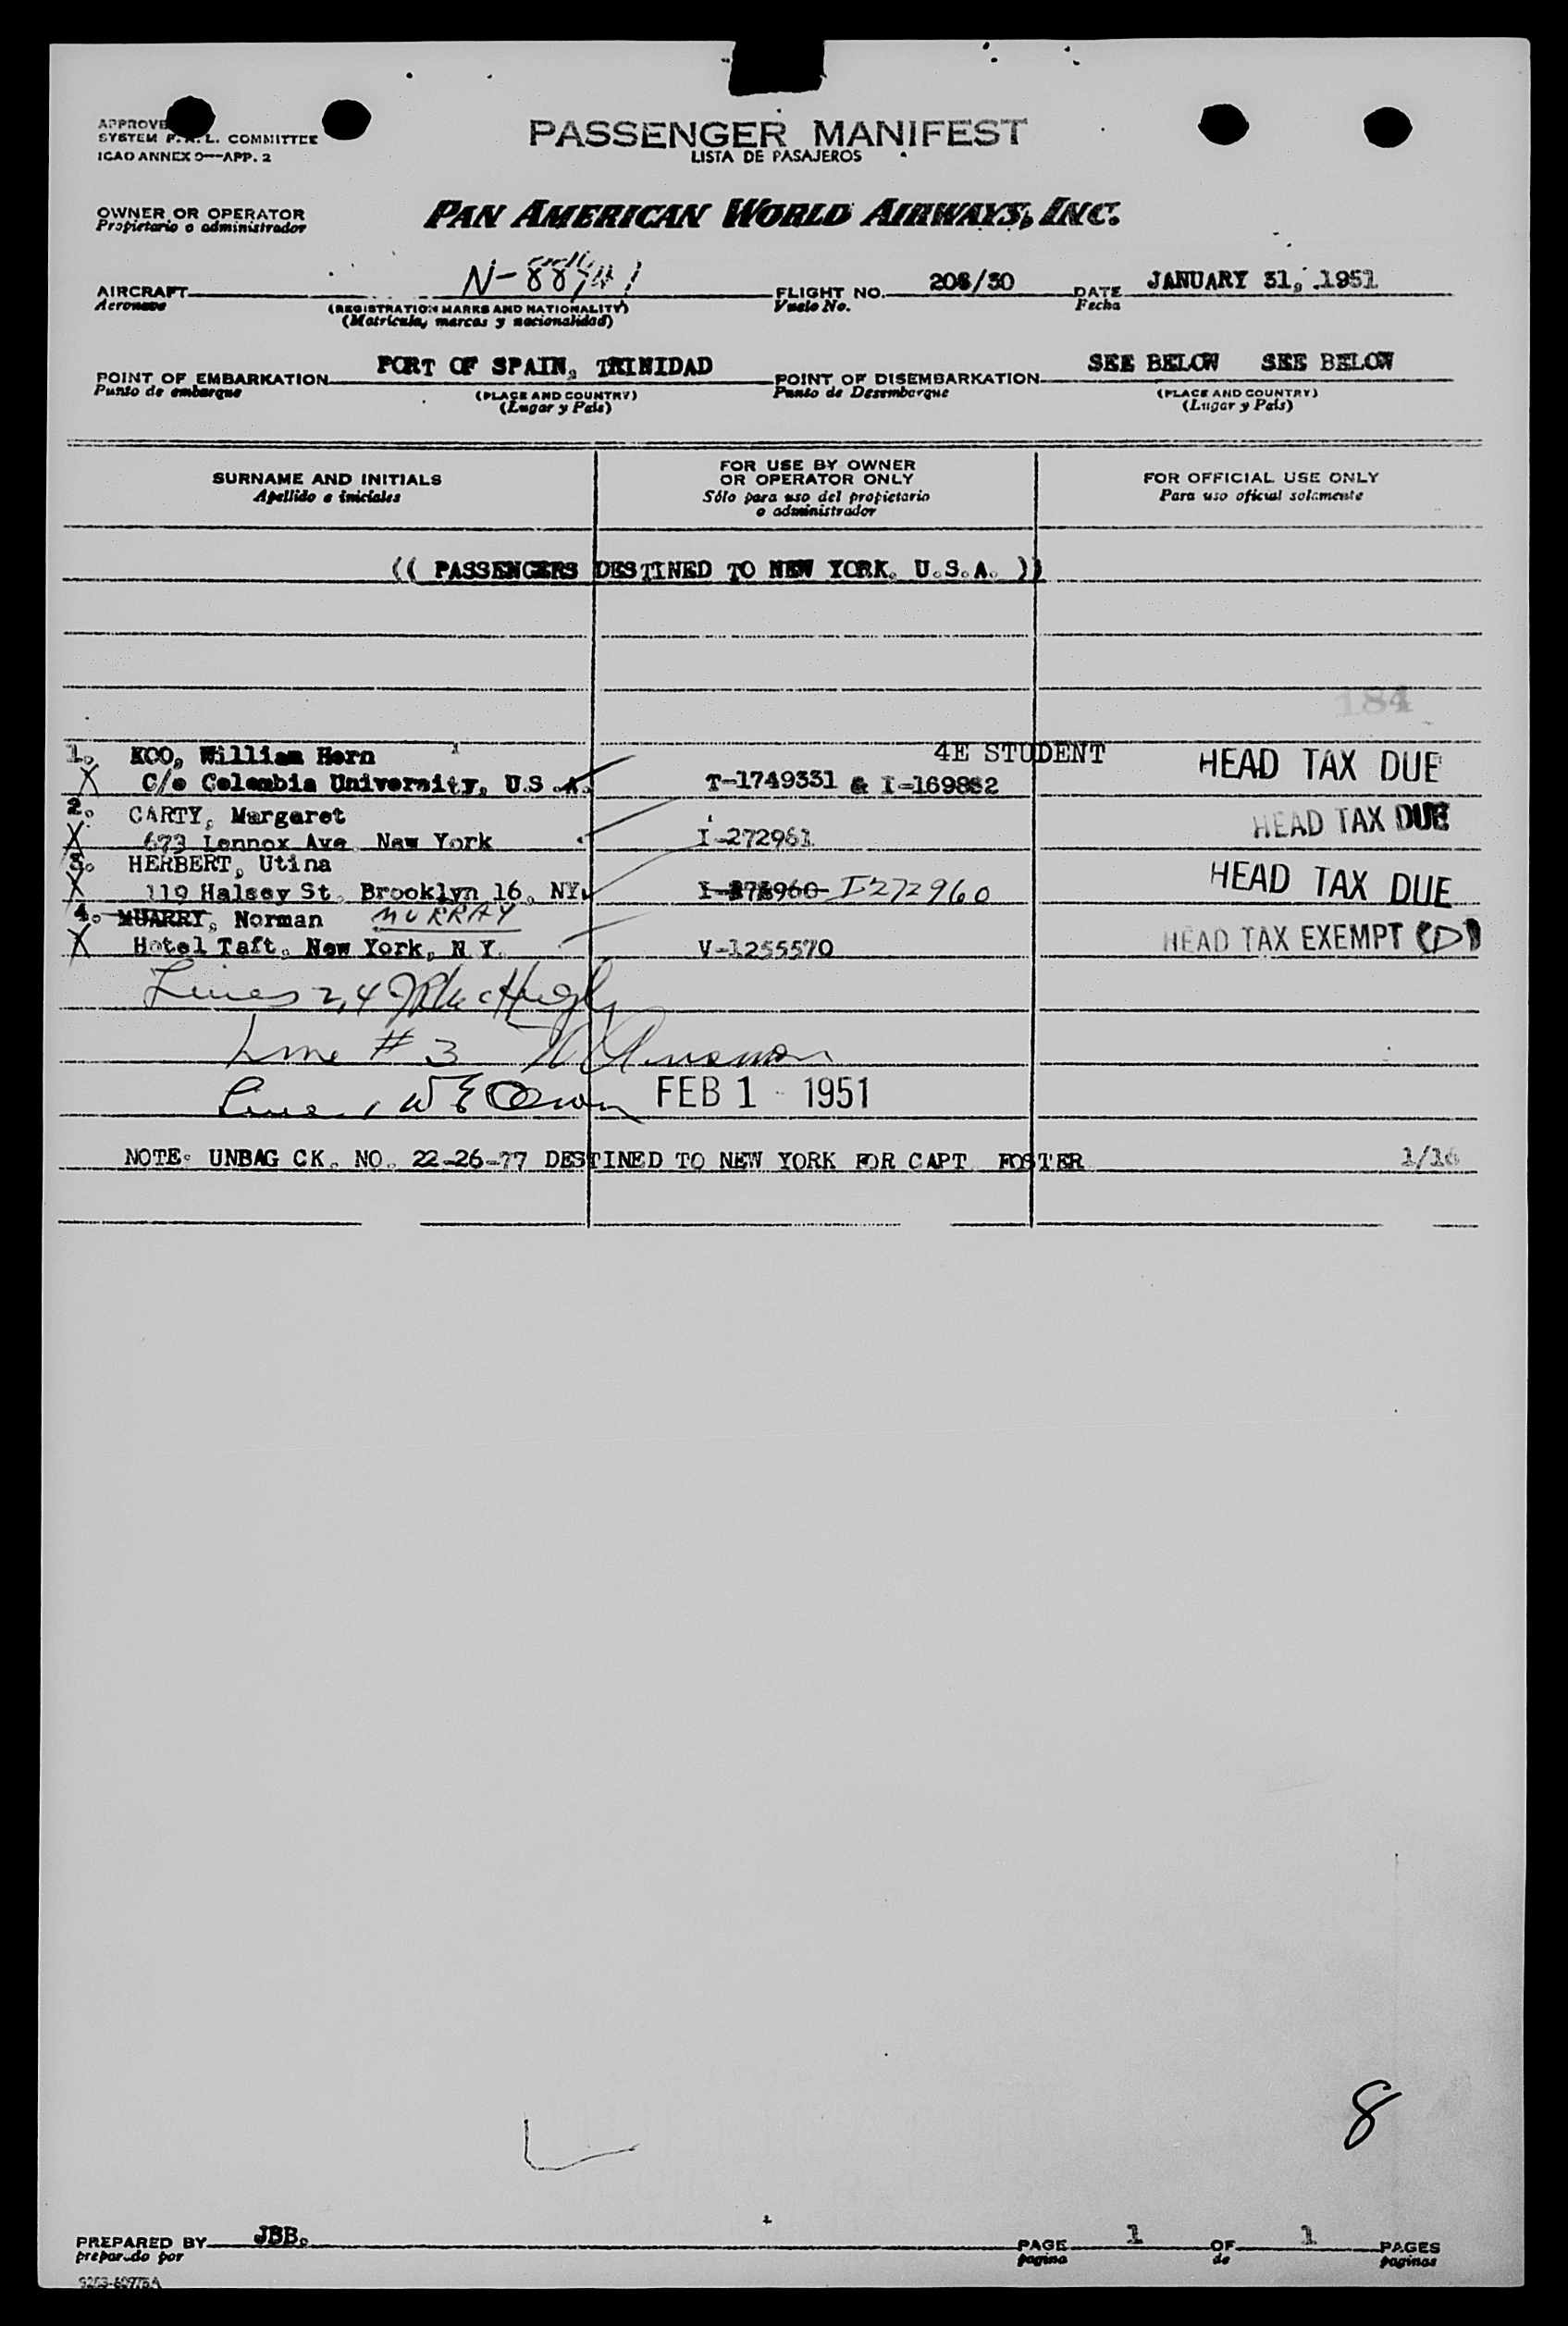 PASSENGER MANIFEST
LISTA DE PASAJEROS
SYSTEM F. A. L. COMMITTEE
ICAO ANNEX 9—APP. 2
OWNER OR OPERATOR
Propietario o administrador
PAN AMERICAN WORLD AIRWAYS, INC.
AIRCRAFT
Aeronave
(REGISTRATION MARKS AND NATIONALITY)
(Matrícula, marcas y nacionalidad)
FLIGHT NO. /30
Vuelo No.
DATE JANUARY 31, 1951
Fecha
POINT OF EMBARKATION PORT OF SPAIN, TRINIDAD
Punto de embarque
(PLACE AND COUNTRY)
(Lugar y País)
POINT OF DISEMBARKATION SEE BELOW SEE BELOW
Punto de Desembarque
(PLACE AND COUNTRY)
(Lugar y País)
SURNAME AND INITIALS
Apellido e iniciales
FOR USE BY OWNER
OR OPERATOR ONLY
Sólo para uso del propietario
o administrador
FOR OFFICIAL USE ONLY
Para uso oficial solamente
(( PASSENGERS DESTINED TO NEW YORK. U.S.A. ))
184
1. KOO, William Hern 4E STUDENT HEAD TAX DUE
X C/o Colombia University, U.S.A. T-1749331 & I-169882
2. CARTY, Margaret HEAD TAX DUE
X 673 Lennox Ave New York I-272961
3. HERBERT, Utina HEAD TAX DUE
X 119 Halsey St. Brooklyn 16, NY. I272960
4. MUARRY, Norman MURRAY
X Hotel Taft, New York, N.Y. V-1255570 HEAD TAX EXEMPT (D)
Lines 2,4
Line # 3
Line 1 FEB 1 - 1951
NOTE: UNBAG CK. NO. 22-26-77 DESTINED TO NEW YORK FOR CAPT FOSTER 1/16
8
PREPARED BY JBB.
preparado por
PAGE 1 OF 1 PAGES
pagina de paginas